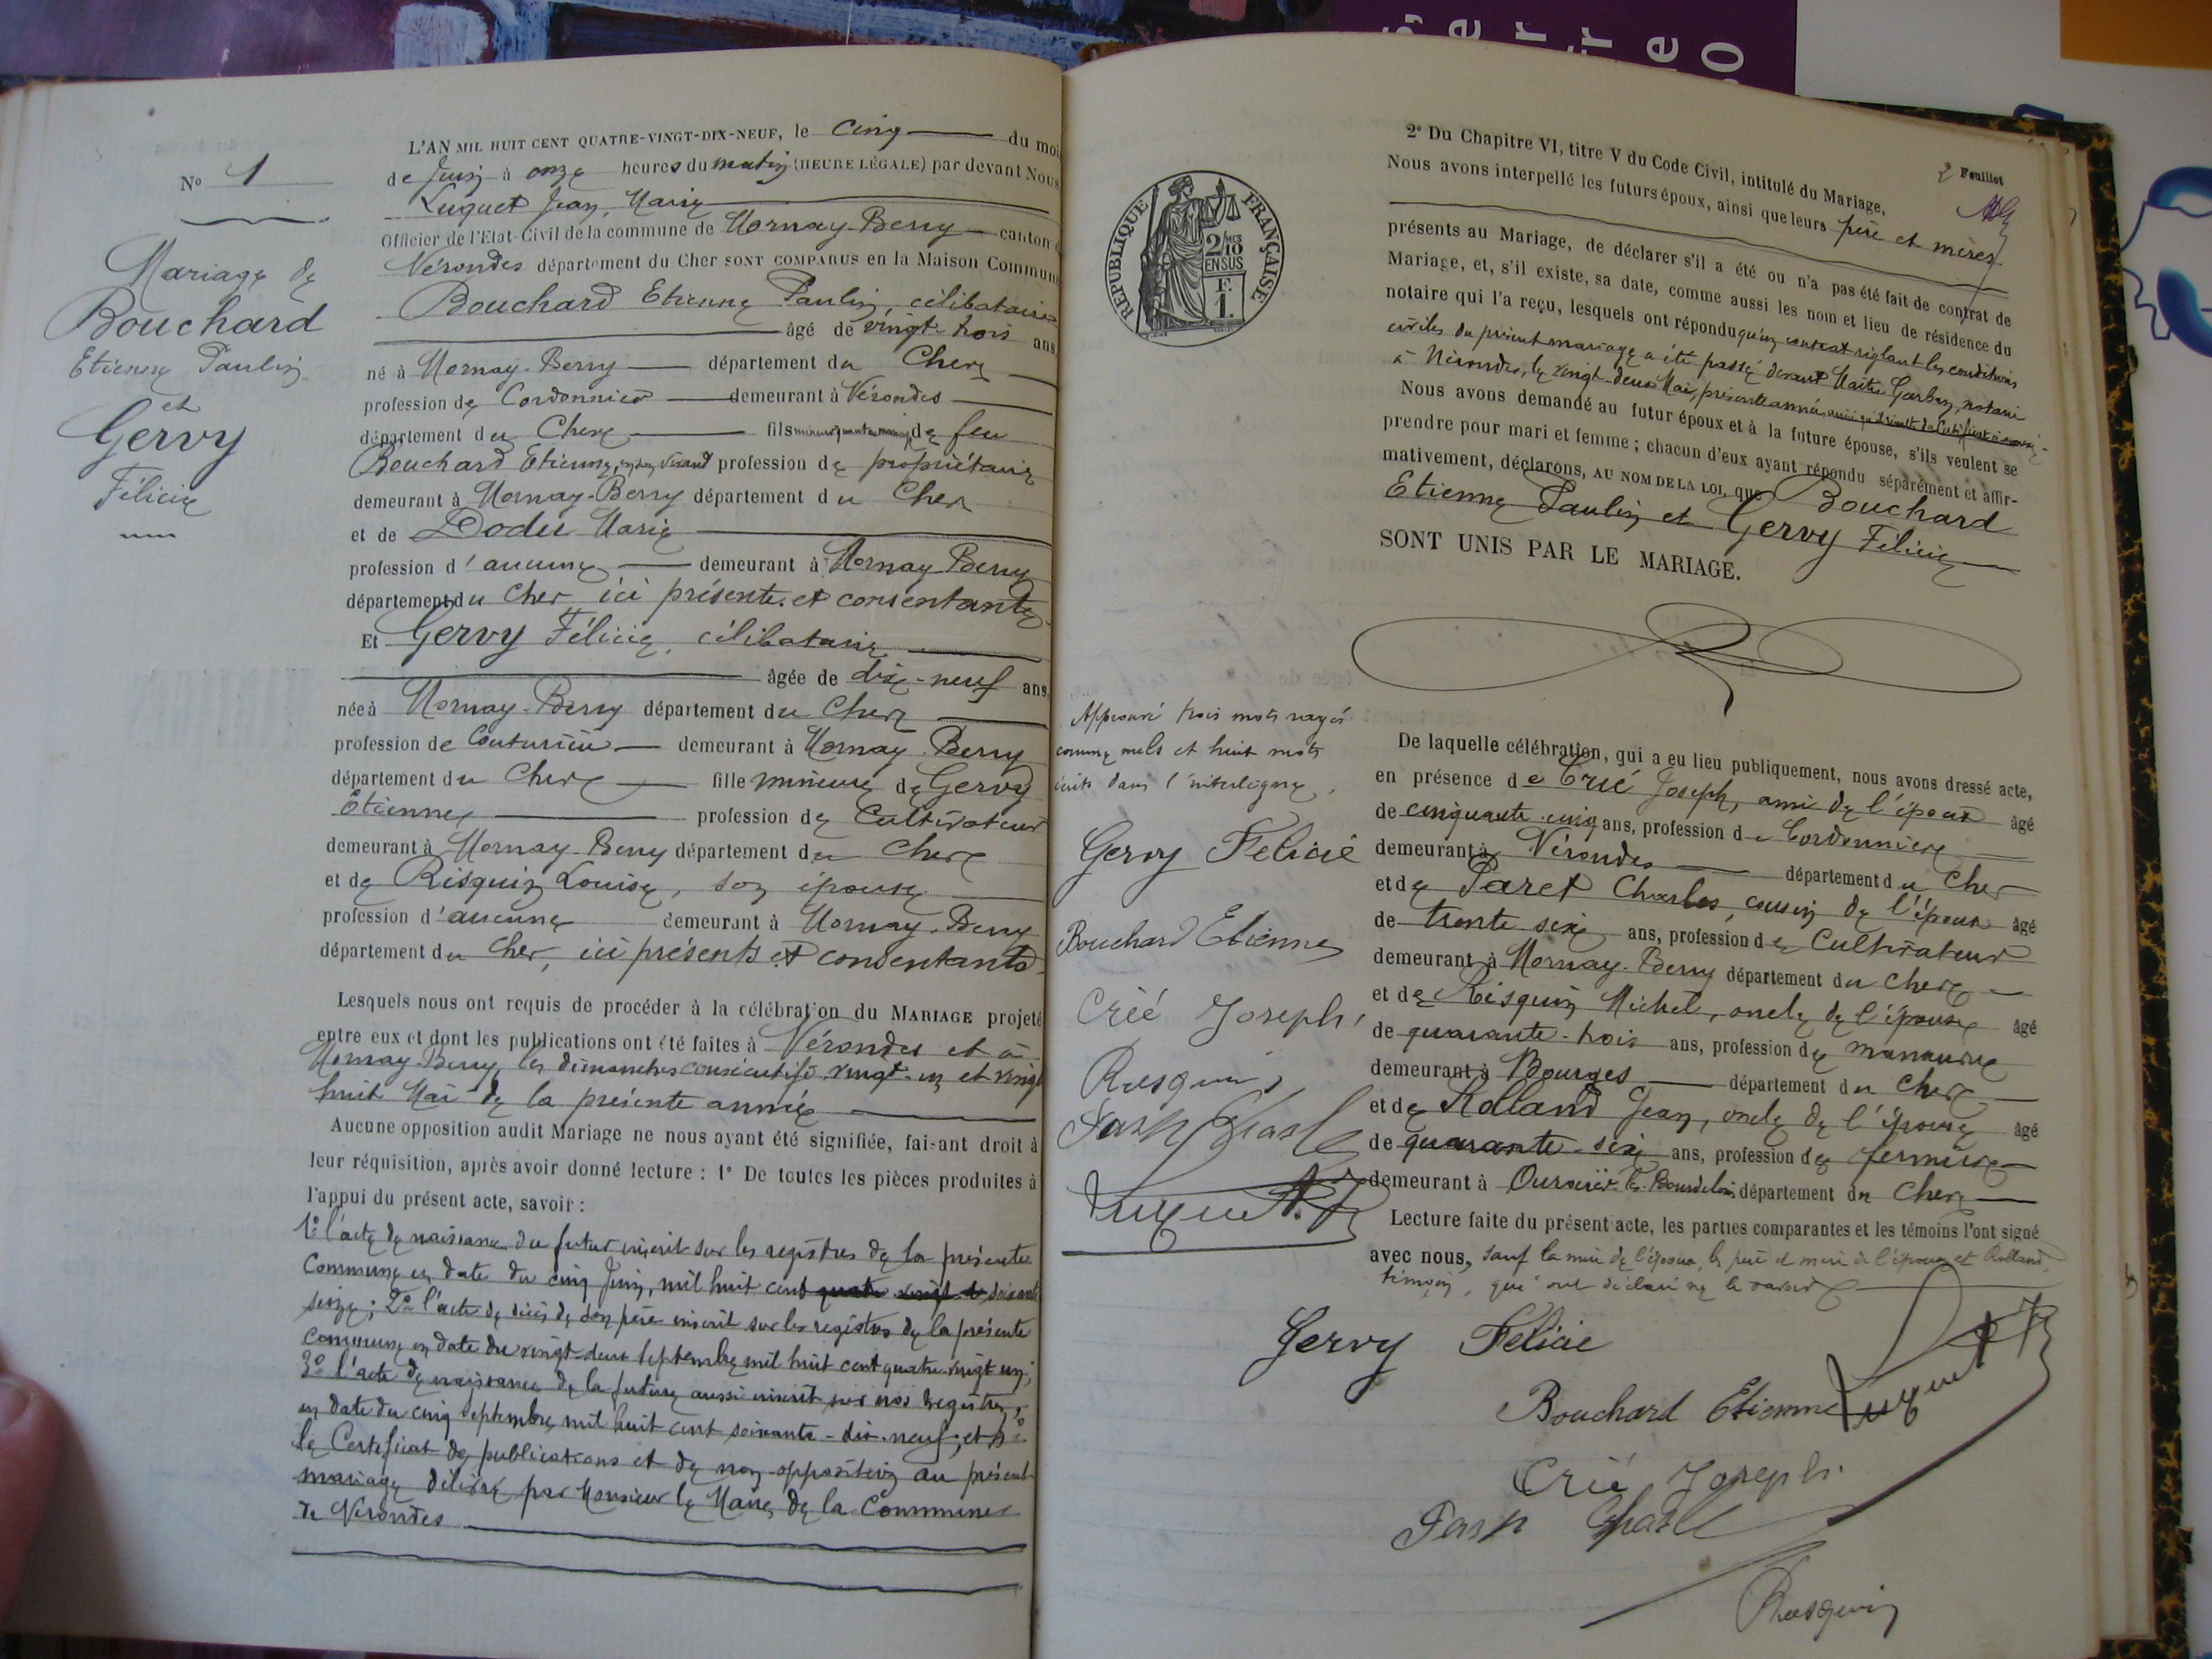 N° 1
Mariage de
Bouchard
Etienne Paulin
et
Gervy
Félicie
L'AN MIL HUIT CENT QUATRE-VINGT-DIX-NEUF, le Cinq du mois
de Juin à onze heures du matin (HEURE LÉGALE) par devant Nous
Luquet Jean, Marie
Officier de l'Etat-Civil de la commune de Mornay-Berry canton de
Nérondes département du Cher SONT COMPARUS en la Maison Commune
Bouchard Etienne Paulin, célibataire
âgé de vingt-trois ans,
né à Mornay-Berry département du Cher
profession de Cordonnier demeurant à Nérondes
département du Cher fils mineur quant au mariage de feu
Bouchard Etienne, en son vivant profession de propriétaire
demeurant à Mornay-Berry département du Cher
et de Dodu Marie
profession d'aucune demeurant à Mornay-Berry
département du Cher ici présente et consentante
Et Gervy Félicie, célibataire
âgée de dix-neuf ans,
née à Mornay-Berry département du Cher
profession de Couturière demeurant à Mornay-Berry
département du Cher fille mineure de Gervy
Etienne profession de Cultivateur
demeurant à Mornay-Berry département du Cher
et de Risquin Louise, son épouse
profession d'aucune demeurant à Mornay-Berry
département du Cher, ici présents et consentants
Lesquels nous ont requis de procéder à la célébration du MARIAGE projeté
entre eux et dont les publications ont été faites à Nérondes et à
Mornay-Berry, les dimanches consécutifs vingt-un et vingt
huit Mai de la présente année
Aucune opposition audit Mariage ne nous ayant été signifiée, faisant droit à
leur réquisition, après avoir donné lecture : 1° De toutes les pièces produites à
l'appui du présent acte, savoir :
1° l'acte de naissance du futur inscrit sur les registres de la présente
Commune en date du cinq Juin, mil huit cent quatre vingt et soixante
seize ; 2° l'acte de décès de son père inscrit sur les registres de la présente
commune en date du vingt-deux Septembre mil huit cent quatre-vingt un ;
3° l'acte de naissance de la future aussi inscrit sur nos registres,
en date du cinq Septembre mil huit cent soixante-dix-neuf, et 4°
le Certificat de publications et de non-opposition au présent
mariage délivré par Monsieur le Maire de la Commune
de Nérondes
RÉPUBLIQUE FRANÇAISE
2/10 MES
EN SUS
F.
1.
2 Feuillet
2° Du Chapitre VI, titre V du Code Civil, intitulé du Mariage,
Nous avons interpellé les futurs époux, ainsi que leurs père et mères
présents au Mariage, de déclarer s'il a été ou n'a pas été fait de contrat de
Mariage, et, s'il existe, sa date, comme aussi les nom et lieu de résidence du
notaire qui l'a reçu, lesquels ont répondu qu'un contrat réglant les conditions
civiles du présent mariage a été passé devant Maître Garban, notaire
à Nérondes, le vingt-deux Mai, présente année, ainsi qu'il résulte du Certificat
Nous avons demandé au futur époux et à la future épouse, s'ils veulent se
prendre pour mari et femme ; chacun d'eux ayant répondu séparément et affir-
mativement, déclarons, AU NOM DE LA LOI, que Bouchard
Etienne Paulin et Gervy Félicie
SONT UNIS PAR LE MARIAGE.
Approuvé trois mots rayés
comme nuls et huit mots
écrits dans l'interligne.
Gervy Felicie
Bouchard Etienne
Crié Joseph
Risquin
Luquet
De laquelle célébration, qui a eu lieu publiquement, nous avons dressé acte,
en présence de Crié Joseph, ami de l'époux âgé
de cinquante cinq ans, profession de Cordonnier
demeurant à Nérondes département du Cher
et de Paret Charles, cousin de l'époux âgé
de trente six ans, profession de Cultivateur
demeurant à Mornay-Berry département du Cher
et de Risquin Michel, oncle de l'épouse âgé
de quarante-trois ans, profession de manœuvre
demeurant à Bourges département du Cher
et de Rolland Jean, oncle de l'épouse âgé
de quarante-six ans, profession de fermier
demeurant à Ourouër-les-Bourdelins département du Cher
Lecture faite du présent acte, les parties comparantes et les témoins l'ont signé
avec nous, sauf la mère de l'époux, les père et mère de l'épouse et Rolland,
témoin, qui ont déclaré ne le savoir
Gervy Felicie
Bouchard Etienne
Luquet
Crié Joseph
Risquin